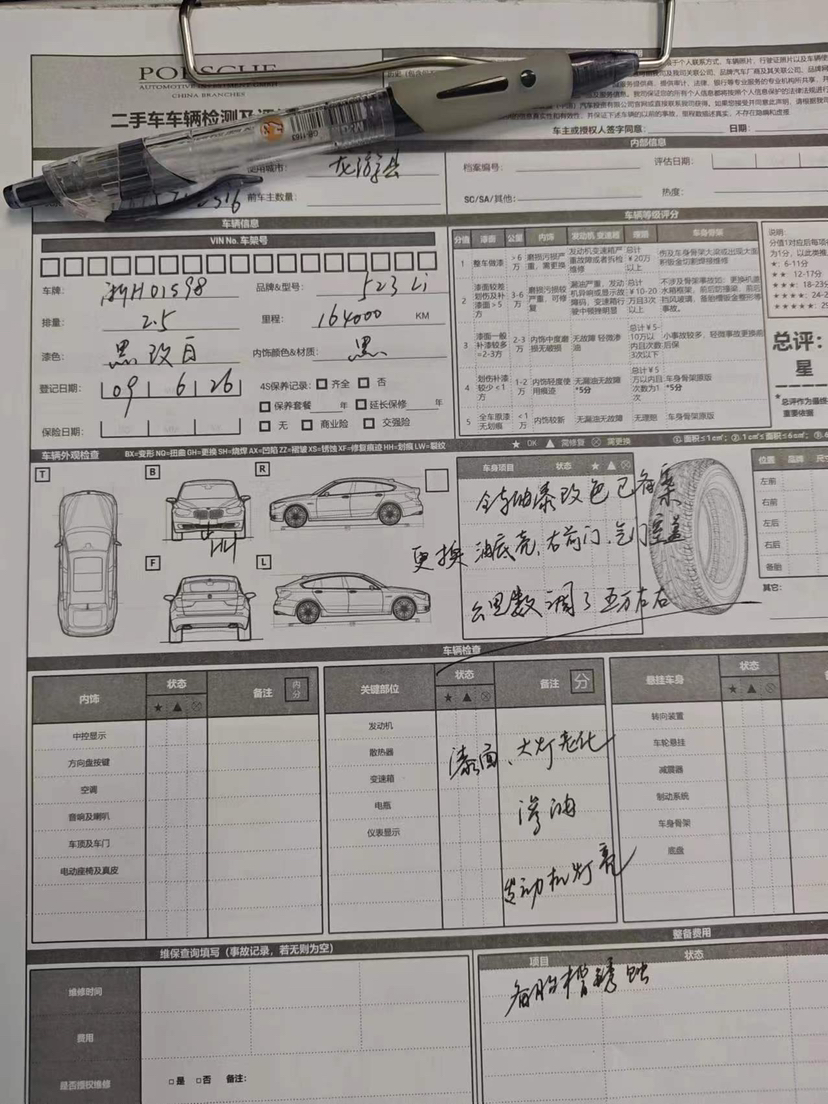 PORSCHE
AUTOMOTIVE INVESTMENT GROUP
CHINA BRANCHES
二手车车辆检测及
车主或授权人签字同意：
日期：
使用城市：龙游县
前车主数量：
内部信息
档案编号：
评估日期：
SC/SA/其他：
热度：
车辆信息
VIN No. 车架号
车牌：浙H01S98
品牌&型号：523Li
排量：2.5
里程：164000 KM
漆色：黑改白
内饰颜色&材质：黑
登记日期：09 6 26
4S保养记录： 齐全 否
保养套餐 年 延长保修 年
保险日期：
无 商业险 交强险
车辆等级评分
分值 漆面 公里 内饰 发动机 变速箱 理赔 车身骨架
1 整车做漆 >6万 磨损污损严重，需更换 发动机变速箱严重故障或者拆检维修 总计￥20万以上 伤及车身骨架大梁或出现大面积钣金切割焊接修复
2 漆面较差 划伤及补漆面>5方 3-6万 磨损污损较严重，可修复 漏油严重，发动机异响或显示故障码，变速箱行驶中顿挫明显 总计￥10-20万且3次以上
3 漆面一般 补漆较多=2-3方 2-3万 内饰中度磨损无破损 无故障 轻微渗油 总计￥5-10万以内且次数3次以下 小事故较多，轻微事故更换前后保
4 划伤补漆较少<1方 1-2万 内饰轻度使用痕迹 无漏油无故障 *5分 总计￥5万以内且次数为1次 车身骨架原版 *5分
5 全车原漆无划痕 <1万 内饰较新 无漏油无故障 无理赔 车身骨架原版
说明：
★：6-11分
★★：12-17分
总评：
星
★ OK ▲ 需修复 ⊗ 需更换
车辆外观检查
BX=变形 NQ=扭曲 GH=更换 SH=烧焊 AX=凹陷 ZZ=褶皱 XS=锈蚀 XF=修复痕迹 HH=划痕 LW=裂纹
T
B
R
F
L
HH
车身项目 状态 ★ ▲ ⊗
全车油漆改色已备案
更换 油底壳、右前门、气门室盖
公里数调了五万左右
位置 品牌
左前
右前
左后
右后
备胎
其它：
车辆检查
内饰 状态 备注 内分
★ ▲ ⊗
中控显示
方向盘按键
空调
音响及喇叭
车顶及车门
电动座椅及真皮
关键部位 状态 备注 分
★ ▲ ⊗
发动机
散热器
变速箱
电瓶
仪表显示
漆面、大灯老化
渗油
发动机灯亮
悬挂车身 状态
★ ▲ ⊗
转向装置
车轮悬挂
减震器
制动系统
车身骨架
底盘
维保查询填写（事故记录，若无则为空）
维修时间
费用
是否授权维修
□是 □否 备注：
整备费用
项目 状态
备胎槽锈蚀